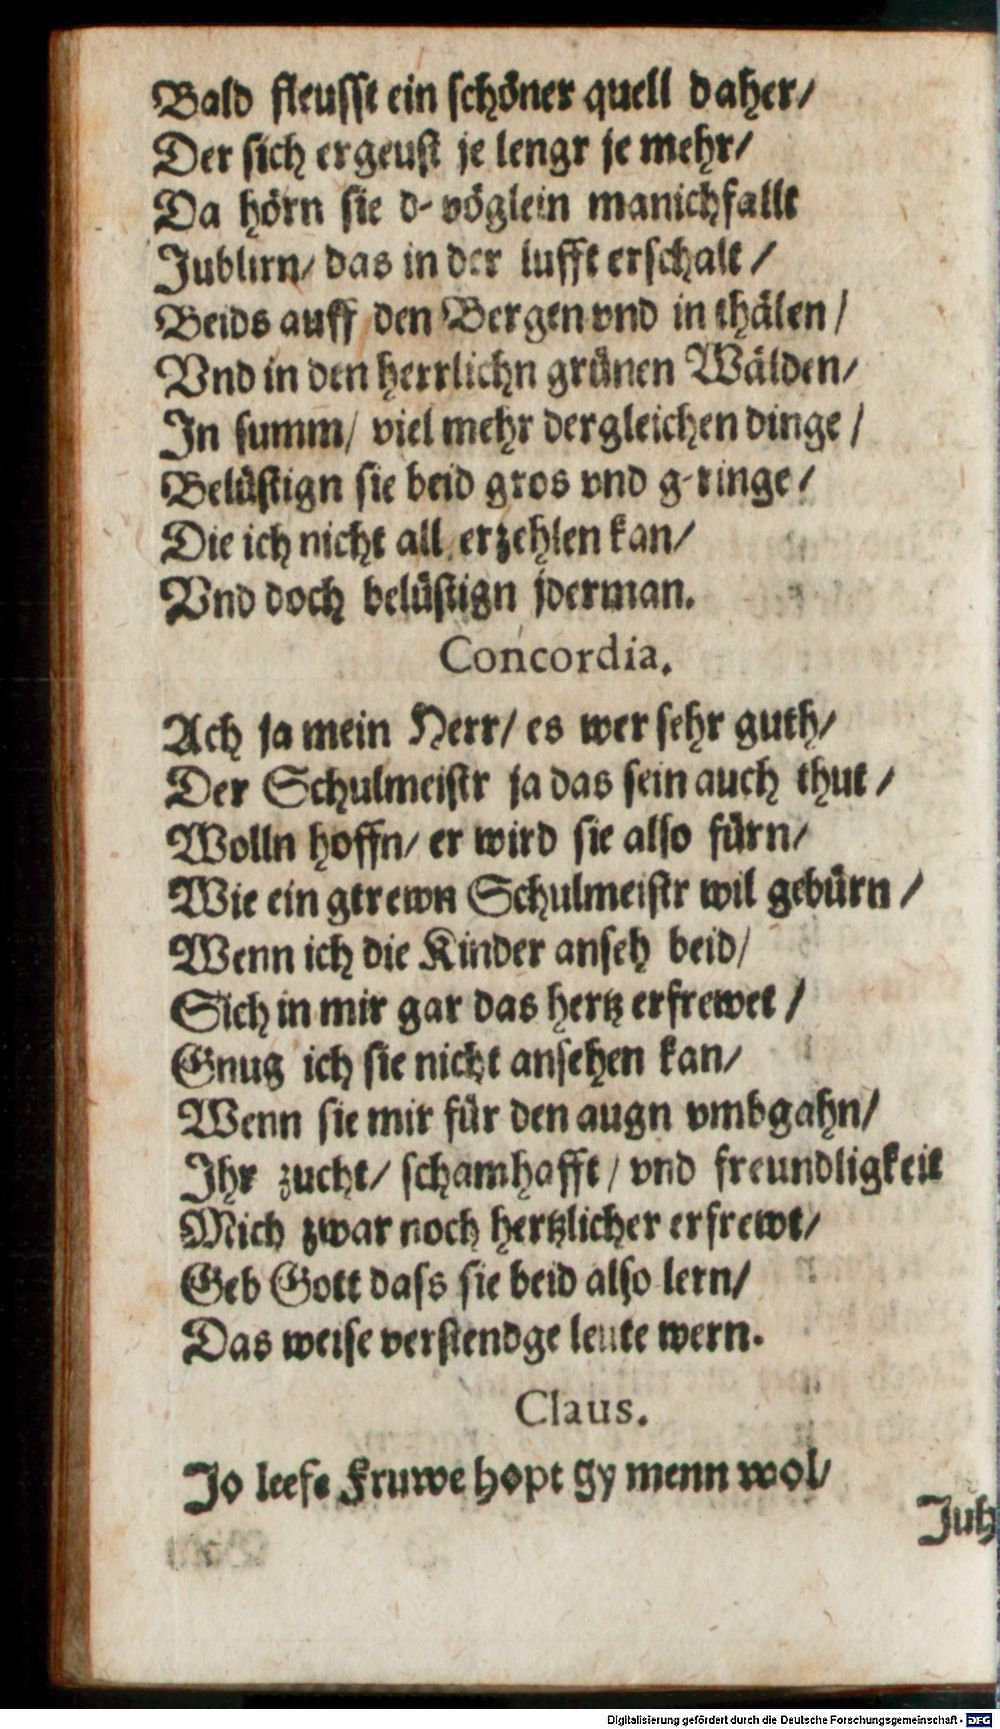 Bald fleusst ein schöner quell daher/
Der sich ergeust je lengr je mehr/
Da hörn sie d- vöglein manichfallt
Jublirn/ das in der lufft erschalt /
Beids auff den Bergen vnd in thälen /
Vnd in den herrlichn grünen Wälden/
In summ/ viel mehr dergleichen dinge /
Belüstign sie beid gros vnd g-ringe /
Die ich nicht all erzehlen kan/
Vnd doch belüstign jderman.
Concordia.
Ach ja mein Herr/ es wer sehr guth/
Der Schulmeistr ja das sein auch thut /
Wolln hoffn/ er wird sie also fürn/
Wie ein gtrewn Schulmeistr wil gebürn /
Wenn ich die Kinder anseh beid/
Sich in mir gar das hertz erfrewet /
Gnug ich sie nicht ansehen kan/
Wenn sie mir für den augn vmbgahn/
Ihr zucht/ schamhafft / vnd freundligkeit
Mich zwar noch hertzlicher erfrewt/
Geb Gott dass sie beid also lern/
Das weise verstendge leute wern.
Claus.
Jo leefe Fruwe hopt gy menn wol/
Juh
Digitalisierung gefördert durch die Deutsche Forschungsgemeinschaft - DFG